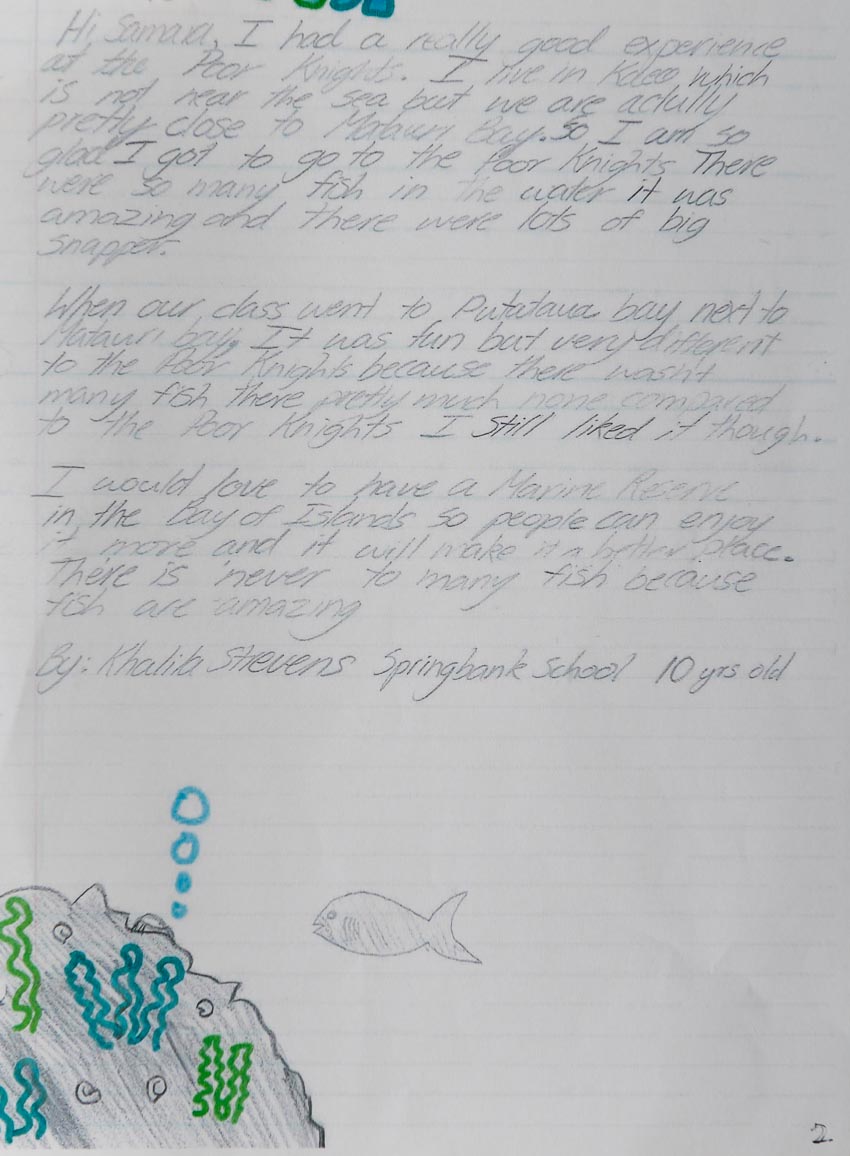 Hi Samara, I had a really good experience
at the Poor Knights. I live in Kaeo which
is not near the sea but we are actully
pretty close to Matauri Bay. So I am so
glad I got to go to the Poor Knights There
were so many fish in the water it was
amazing and there were lots of big
snapper.
When our class went to Putataua bay next to
Matauri bay. It was fun but very different
to the Poor Knights because there wasn't
many fish there pretty much none compared
to the Poor Knights I still liked it though.
I would love to have a Marine Reserve
in the Bay of Islands so people can enjoy
it more and it will make it a better place.
There is never to many fish because
fish are amazing
By: Khalila Stevens Springbank School 10 yrs old
2